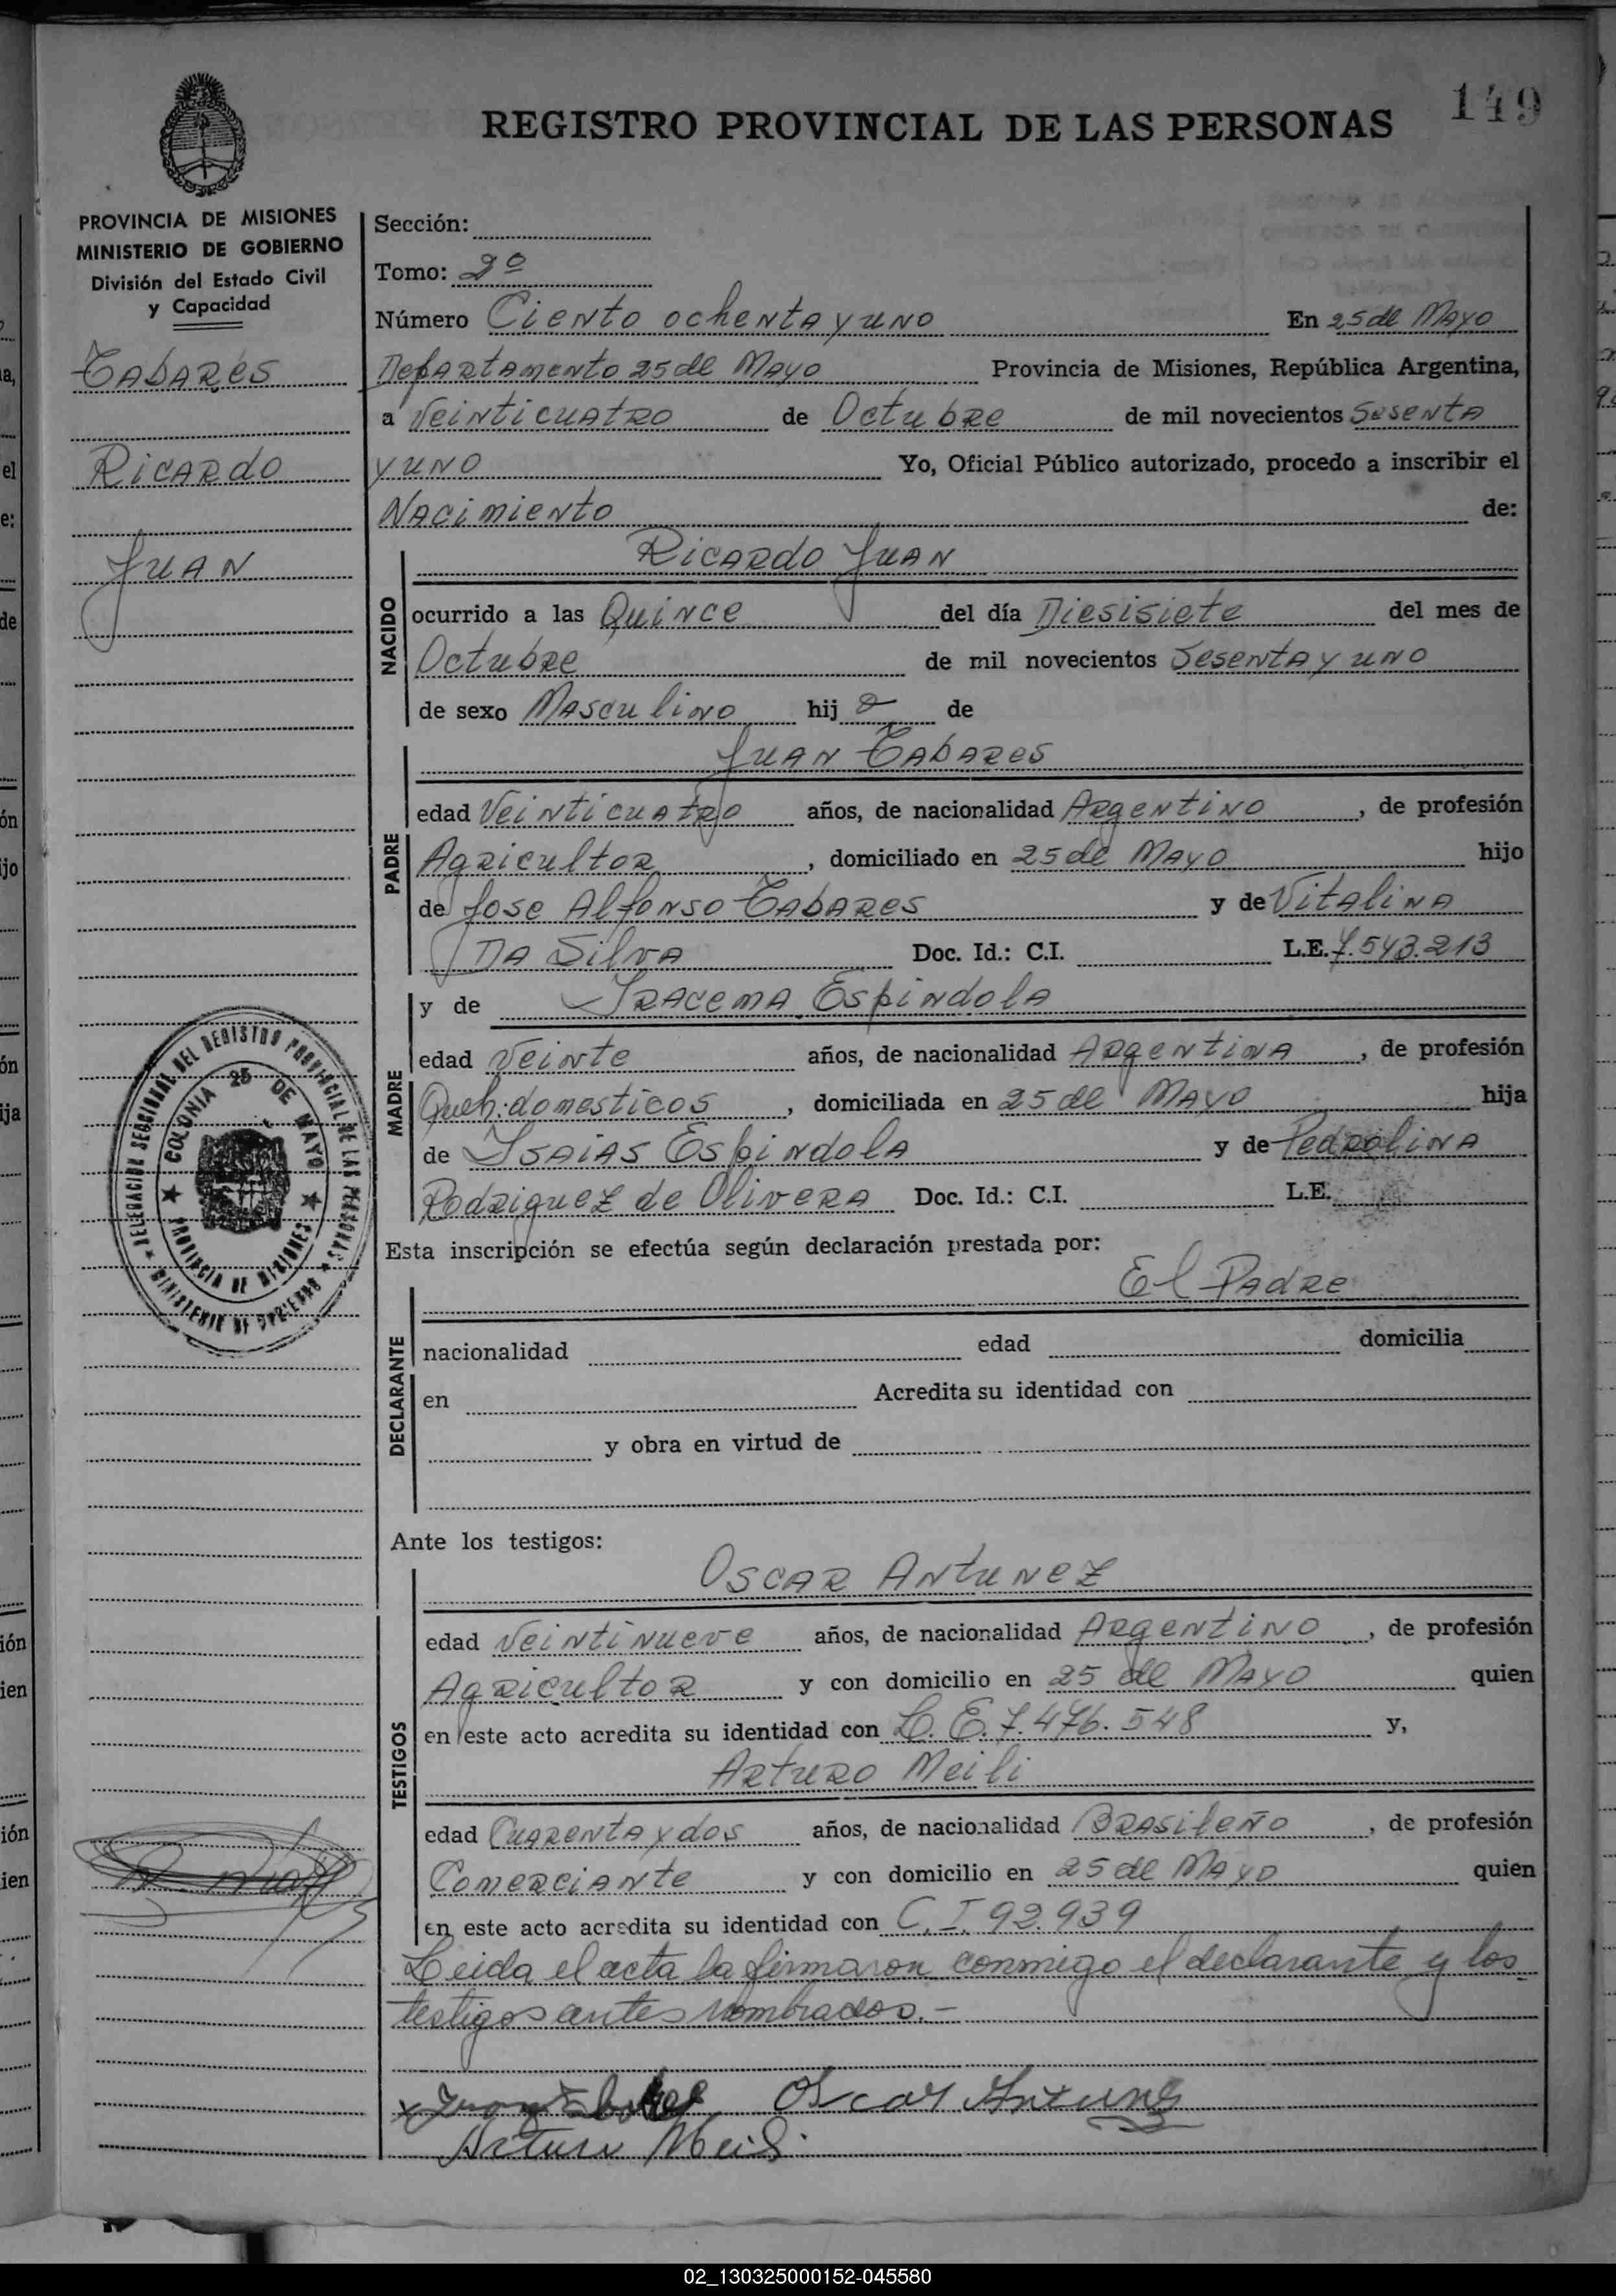 149
REGISTRO PROVINCIAL DE LAS PERSONAS
PROVINCIA DE MISIONES
MINISTERIO DE GOBIERNO
División del Estado Civil
y Capacidad
Tabares
Ricardo
Juan
Sección:
Tomo: 2º
Número Ciento ochenta y uno En 25 de Mayo
Departamento 25 de Mayo Provincia de Misiones, República Argentina,
a Veinticuatro de Octubre de mil novecientos Sesenta
y uno Yo, Oficial Público autorizado, procedo a inscribir el
Nacimiento de:
NACIDO
Ricardo Juan
ocurrido a las Quince del día Diesisiete del mes de
Octubre de mil novecientos Sesenta y uno
de sexo Masculino hijo de
PADRE
Juan Tabares
edad Veinticuatro años, de nacionalidad Argentino, de profesión
Agricultor, domiciliado en 25 de Mayo hijo
de Jose Alfonso Tabares y de Vitalina
Da Silva Doc. Id.: C.I. L.E. 7.543.213
MADRE
y de Iracema Espindola
edad Veinte años, de nacionalidad Argentina, de profesión
Queh. domesticos, domiciliada en 25 de Mayo hija
de Isaias Espindola y de Pedrolina
Rodriguez de Olivera Doc. Id.: C.I. L.E.
DELEGACION SECCIONAL DEL REGISTRO PROVINCIAL DE LAS PERSONAS
COLONIA 25 DE MAYO
PROVINCIA DE MISIONES
MINISTERIO DE GOBIERNO
Esta inscripción se efectúa según declaración prestada por:
DECLARANTE
El Padre
nacionalidad edad domicilia
en Acredita su identidad con
y obra en virtud de
Ante los testigos:
TESTIGOS
Oscar Antunez
edad Veintinueve años, de nacionalidad Argentino, de profesión
Agricultor y con domicilio en 25 de Mayo quien
en este acto acredita su identidad con L.E. 7.476.548 y,
Arturo Meili
edad Cuarenta y dos años, de nacionalidad Brasileño, de profesión
Comerciante y con domicilio en 25 de Mayo quien
en este acto acredita su identidad con C.I. 92.939
Leida el acta la firmaron conmigo el declarante y los
testigos antes nombrados.-
Oscar Antunez
Arturo Meili
02_130325000152-045580